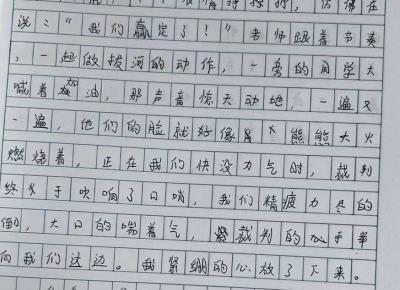 说：“我们赢定了！”老师跟着节奏
，一起做拔河的动作，一旁的同学大
喊着加油，那声音惊天动地，一遍又
一遍，他们的脸就好像 熊熊大火
燃烧着，正在我们快没力气时，裁判
终于吹响了口哨，我们精疲力尽的
倒，大口的喘着气，裁判的 手举
向我们这边。我紧绷的心放了下来。